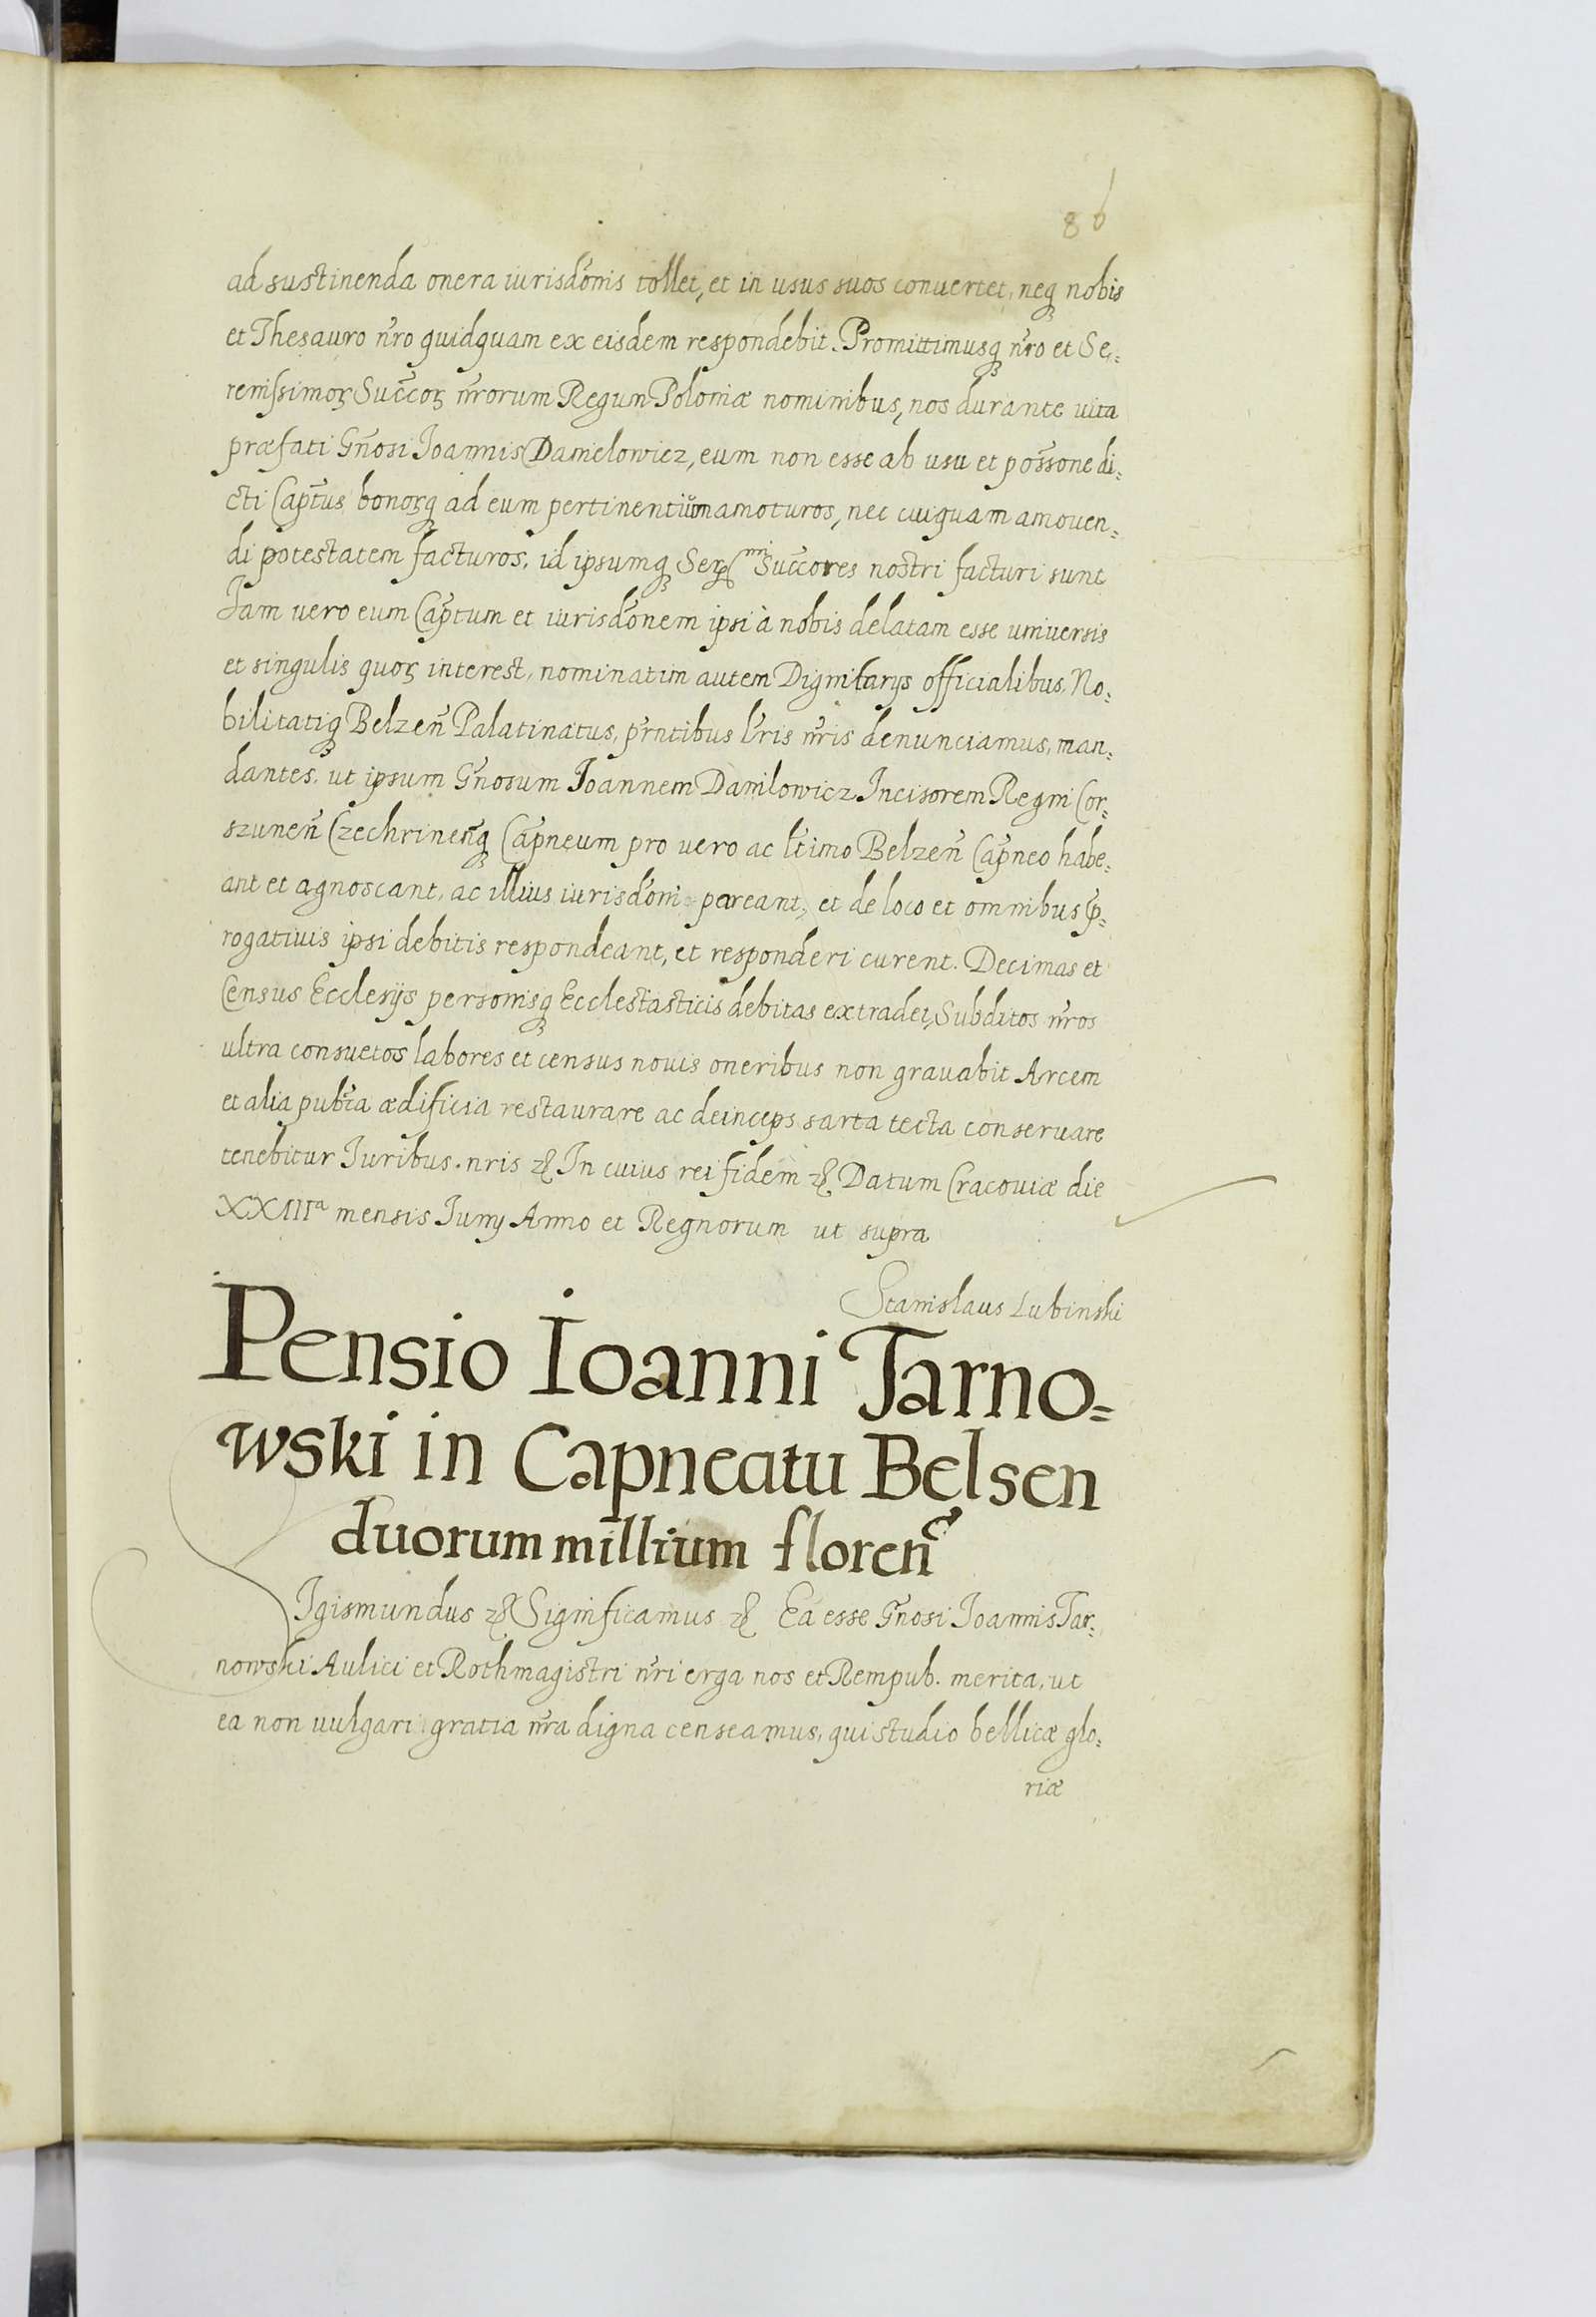 86
ad sustinenda onera iurisdõnis tollet, et in usus suos convertet, neqʒ nobis
et Thesauro ñro quidquam ex eisdem respondebit. Promittimusqʒ ñro et Se-
renissimoꝝ Succ̃oꝝ ñrorum Regum Poloniæ nominibus, nos durante vita
præfati Gñosi Joannis Danielowicz, eum non esse ab usu et poss̃one di-
cti Cap̃tus bonoꝝqʒ ad eum pertinentium amoturos, nec cuiquam amoven-
di potestatem facturos, id ipsumqʒ Ser^mi Succ̃ores nostri facturi sunt
Jam vero eum Cap̃tum et iurisdõnem ipsi à nobis delatam esse universis
et singulis quoꝝ interest, nominatim autem Dignitarijs officialibus No-
bilitatiqʒ Belzeñ Palatinatus, pr̃ntibus lr̃is ñris denunciamus, man-
dantes, ut ipsum Gñosum Joannem Danilowicz Incisorem Regni Cor-
szuneñ Czechrineñqʒ Cap̃neum pro vero ac lt̃imo Belzeñ Cap̃neo habe-
ant et agnoscant, ac illius iurisdõni pareant, et de loco et omnibus p̃-
rogativis ipsi debitis respondeant, et responderi curent. Decimas et
Census Ecclesijs personisqʒ Ecclesiasticis debitas extradet, Subditos ñros
ultra consuetos labores et census novis oneribus non gravabit Arcem
et alia publ̃ca ædificia restaurare ac deinceps sarta tecta conservare
tenebitur Juribus nris ꝛc̃ In cuius rei fidem ꝛc̃ Datum Cracoviæ die
XXIII^a mensis Junij Anno et Regnorum ut supra
Stanislaus Lubinski
Pensio Ioanni Tarno=
wski in Capneatu Belsen
duorum millium floreñ
Igismundus ꝛc̃ Significamus ꝛc̃ Ea esse Gñosi Joannis Tar-
nowski Aulici et Rothmagistri ñri erga nos et Rempub. merita, ut
ea non vulgari gratia ñra digna censeamus, qui studio bellicæ glo-
riæ